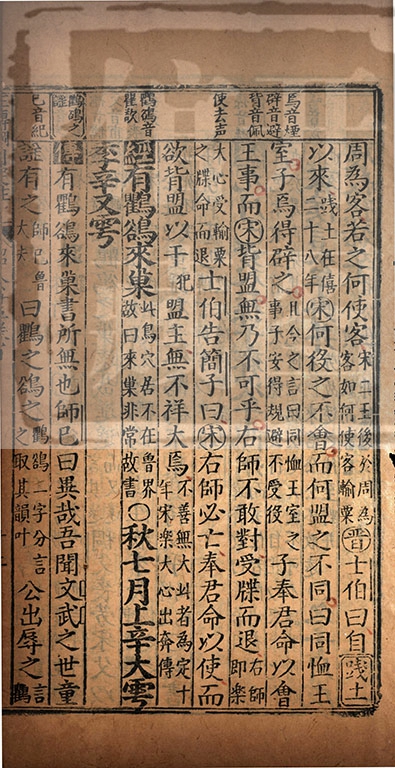 焉音煙
辟音避
背音佩
使去声
鸜鵒音
瞿欲
鸜鵒之
謠
巳音紀
周為客若之何使客宋二王後於周為客如何使客輸粟晉士伯曰自踐土
以來踐土在僖二十八年宋何役之不會而何盟之不同曰同恤王
室子焉得辟之且今之言曰同恤王室之事子安得規避不受役子奉君命以會
王事而宋背盟無乃不可乎右師不敢對受牒而退右師即樂
大心受輸粟之牒命而退士伯告簡子曰宋右師必亡奉君命以使而
欲背盟以干犯盟主無不祥大焉不善無大此者為定十年宋樂大心出奔傳
經有鸜鵒來巢此鳥穴居不在魯界故曰來巢非常故書○秋七月上辛大雩
季辛又雩
傳有鸜鵒來巢書所無也師巳曰異哉吾聞文武之世童
謠有之師巳魯大夫曰鸜之鵒之鸜鵒二字分言之取其韻叶公出辱之言鸜